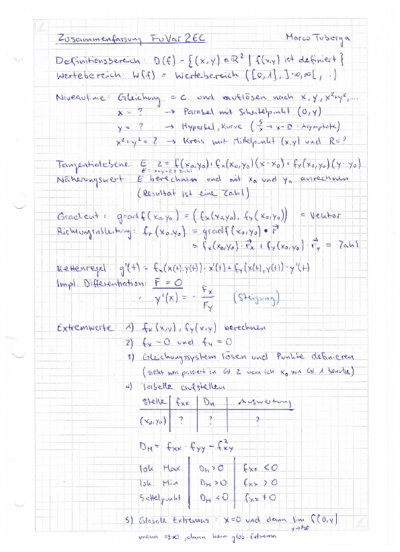 Zusammenfassung FuVar 2EC Marco Tuberga
Definitionsbereich: D(f) = {(x,y) ∈ ℝ² | f(x,y) ist definiert}
Wertebereich: W(f) = Wertebereich ([0,1], ]-∞,∞[, ..)
Niveaulinie: Gleichung = c und auflösen nach x, y, x²+y², ...
x = ? → Parabel mit Scheitelpunkt (0,y)
y = ? → Hyperbel, Kurve (x → 0 : Asymptote)
x²+y² = ? → Kreis mit Mittelpunkt (x,y) und R = ?
Tangentialebene E z = f(x₀,y₀) + fx(x₀,y₀)(x-x₀) + fy(x₀,y₀)(y-y₀)
Näherungswert E berechnen und mit x₀ und y₀ ausrechnen
(Resultat ist eine Zahl)
Gradient: grad f(x₀,y₀) = (fx(x₀,y₀), fy(x₀,y₀)) = Vektor
Richtungsableitung: fr(x₀,y₀) = grad f(x₀,y₀) · r⃗
= fx(x₀,y₀) · r⃗x + fy(x₀,y₀) · r⃗y = Zahl
Kettenregel g'(t) = fx(x(t),y(t)) · x'(t) + fy(x(t),y(t)) · y'(t)
Impl. Differentiation: F = 0
y'(x) = - Fx / Fy (Steigung)
Extremwerte 1) fx(x,y), fy(x,y) berechnen
2) fx = 0 und fy = 0
3) Gleichungssystem lösen und Punkte definieren
(Was passiert in Gl 2 wenn ich x₀ von Gl 1 benutze)
4) Tabelle aufstellen
Stelle | fxx | DH | Auswertung
(x₀,y₀) | ? | ? | ?
DH = fxx · fyy - f²xy
lok. Max | DH > 0 | fxx < 0
lok. Min | DH > 0 | fxx > 0
Sattelpunkt | DH < 0 | fxx ≠ 0
5) Globale Extremas : x=0 und dann lim f(0,y)
wenn ±∞, dann kein glob. Extrema